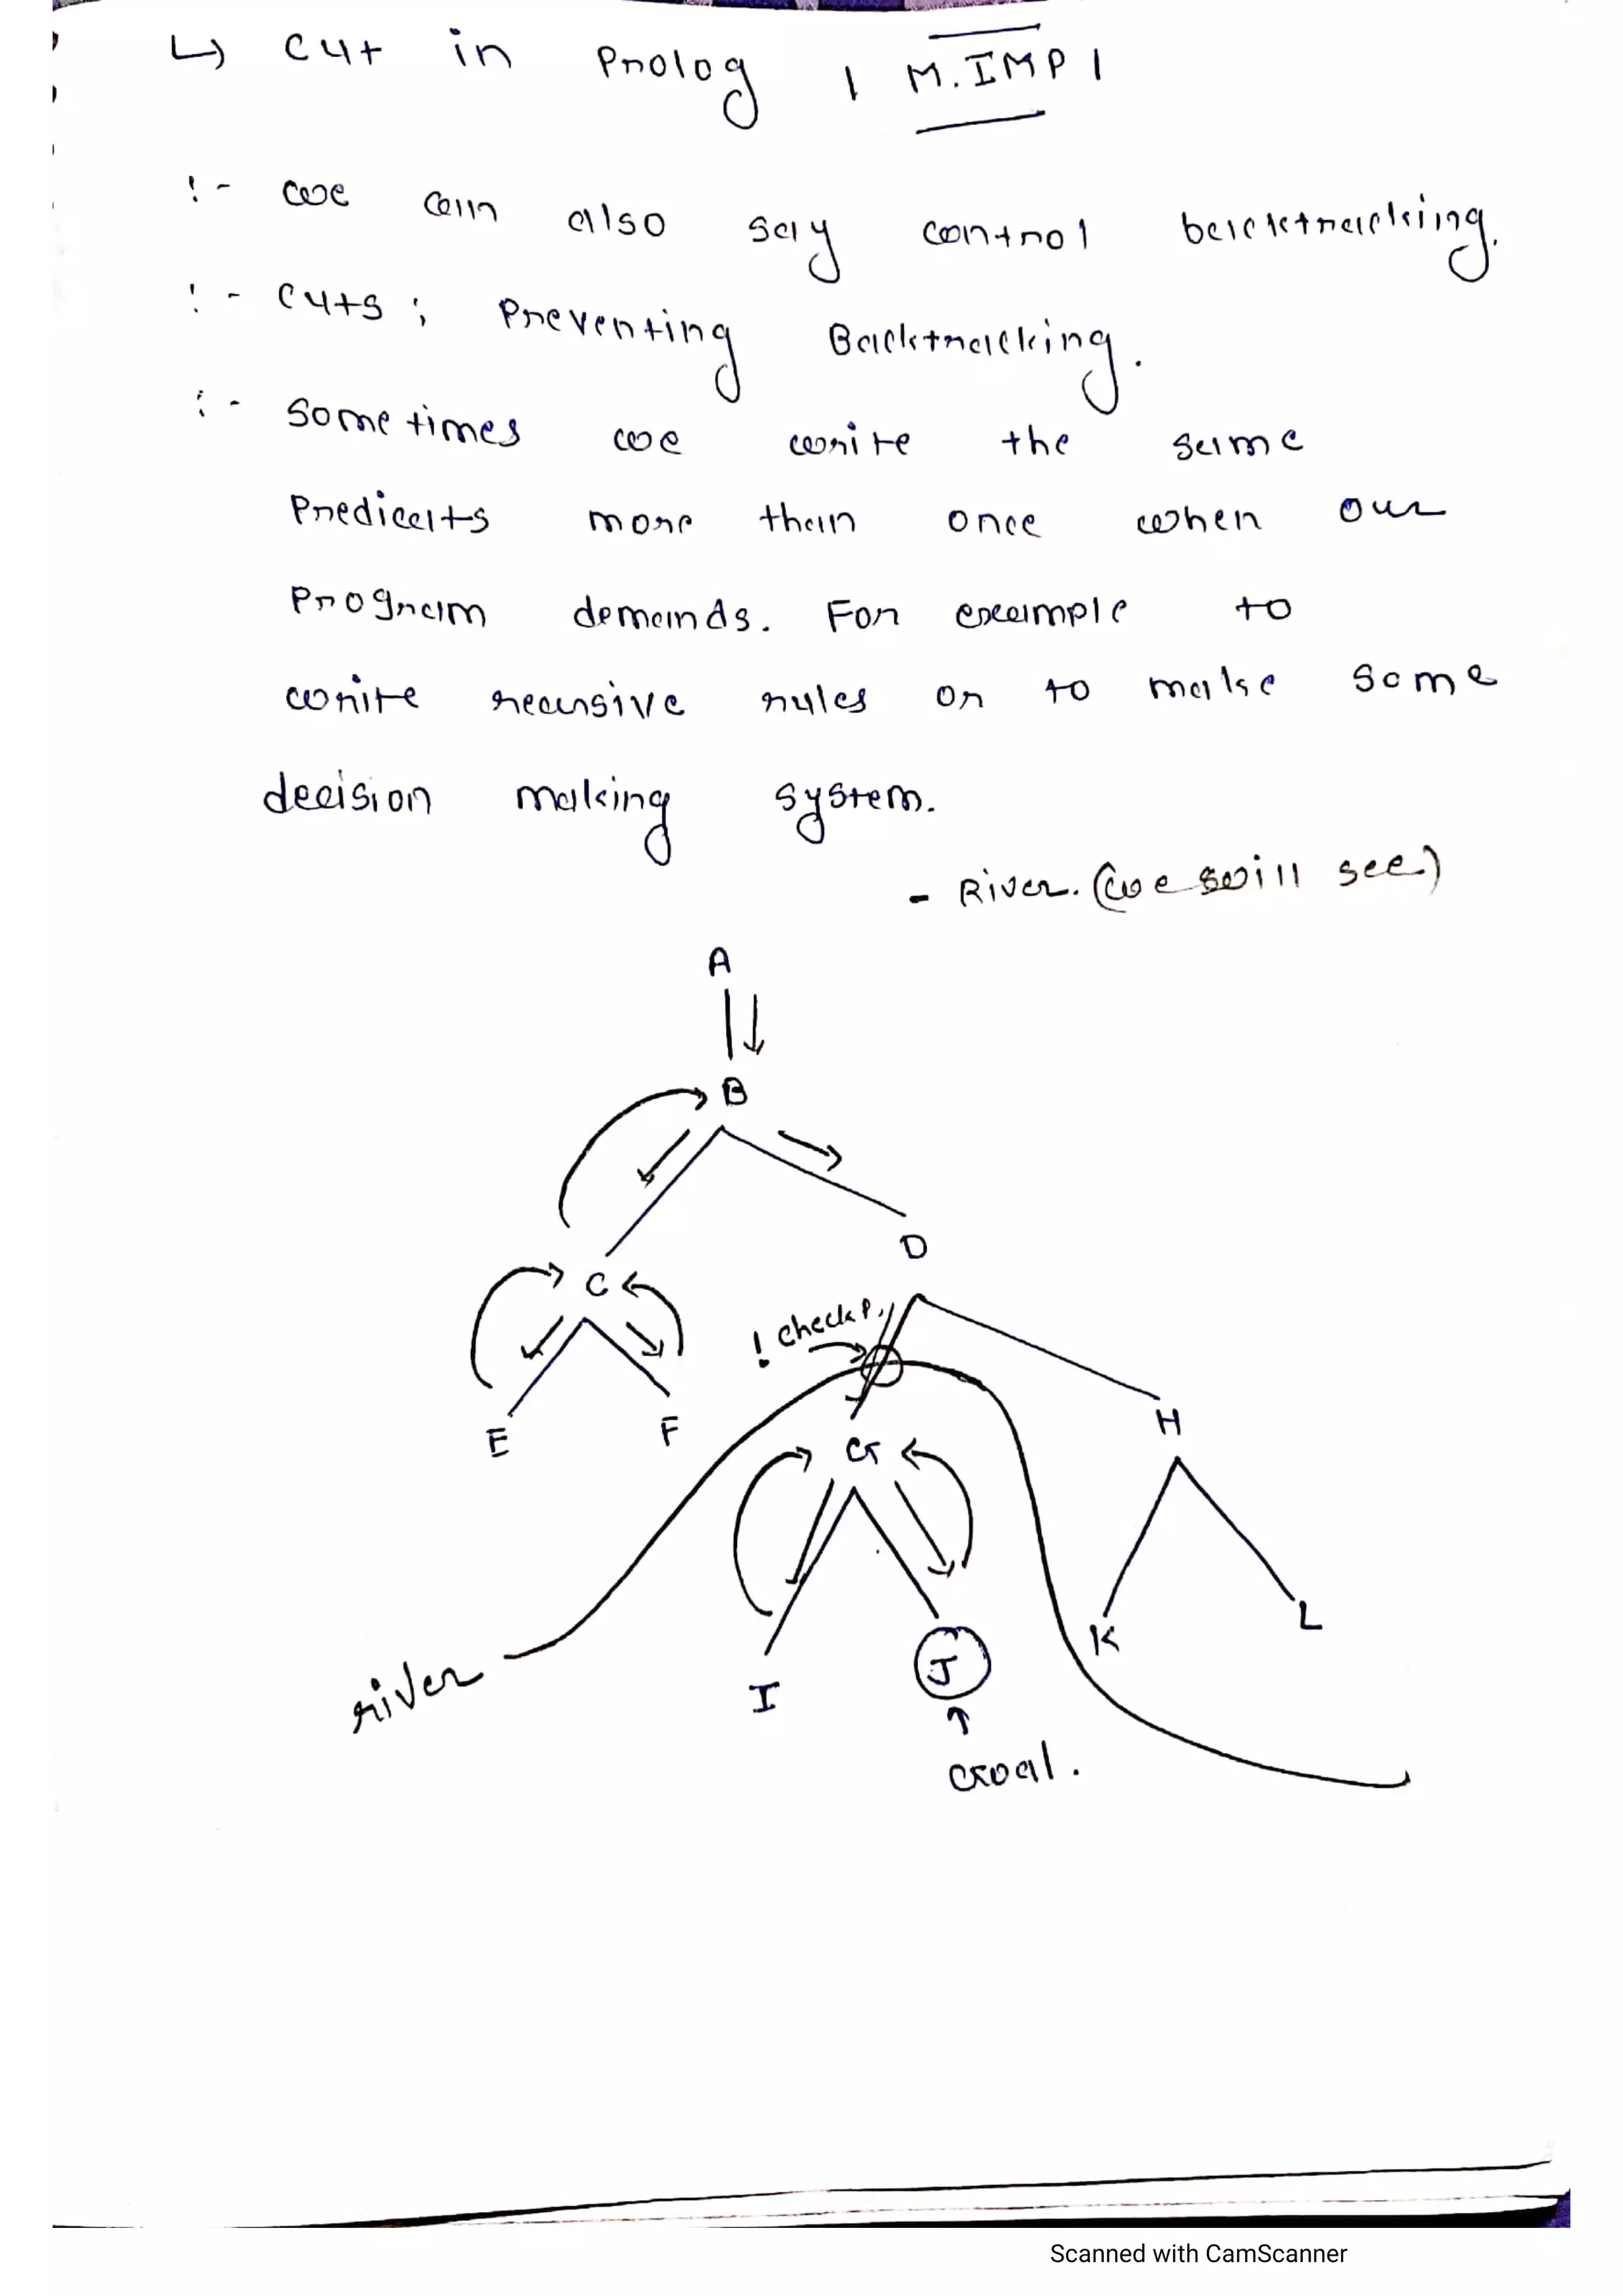 ↳ Cut in Prolog | M.IMP |
:- we can also say control backtracking.
:- Cuts : Preventing Backtracking.
:- Sometimes we write the same
Predicats more than once when our
Program demands. For example to
write recursive rules or to make some
decision making system.
- River. (we will see)
A
B
D
C
! checkP.
E F G H
I J K L
river
Goal.
Scanned with CamScanner